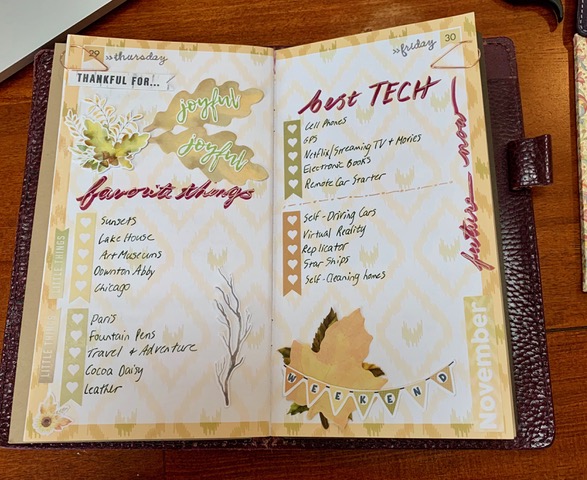 29
»thursday
THANKFUL FOR...
joyful
joyful
favorite things
LITTLE THINGS
Sunsets
Lake House
Art Museums
Downton Abby
Chicago
LITTLE THINGS
Paris
Fountain Pens
Travel & Adventure
Cocoa Daisy
Leather
»friday
30
best TECH
now
Cell Phones
GPS
Netflix/Streaming TV + Movies
Electronic Books
Remote Car Starter
future
Self-Driving Cars
Virtual Reality
Replicator
Star Ships
Self-Cleaning homes
WEEKEND
November